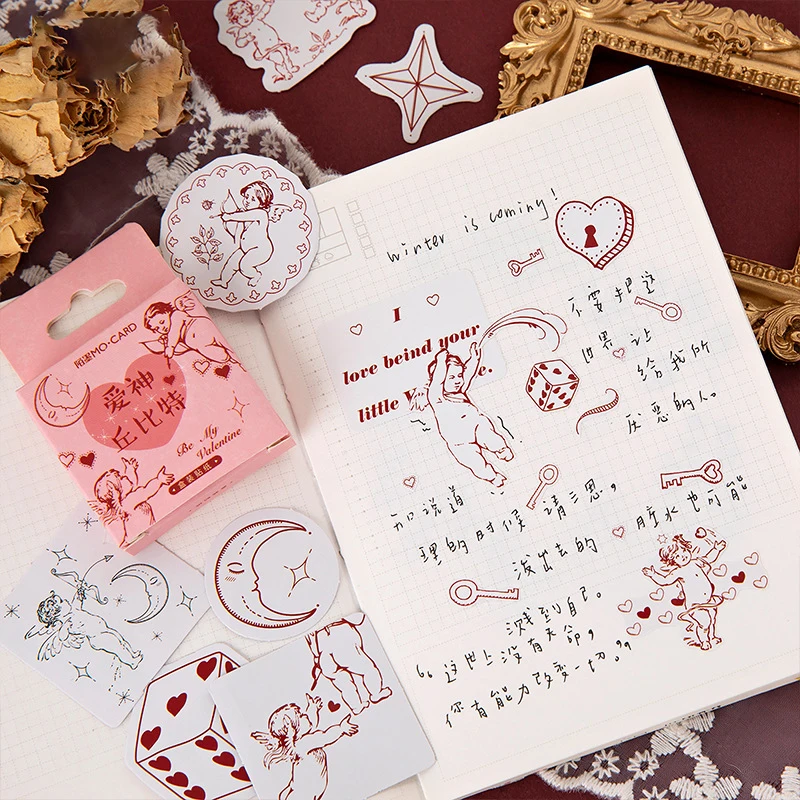 陌墨MO·CARD
爱神
丘比特
Be My
Valentine
盒装贴纸
Winter is coming!
I
love beind your
little
不要把这
世界让
给我所
厌恶的人。
别说道
理的时候请三思。
脏水也可能
泼出去的
溅到自己。
“这世上没有天命，
你有能力改变一切。”